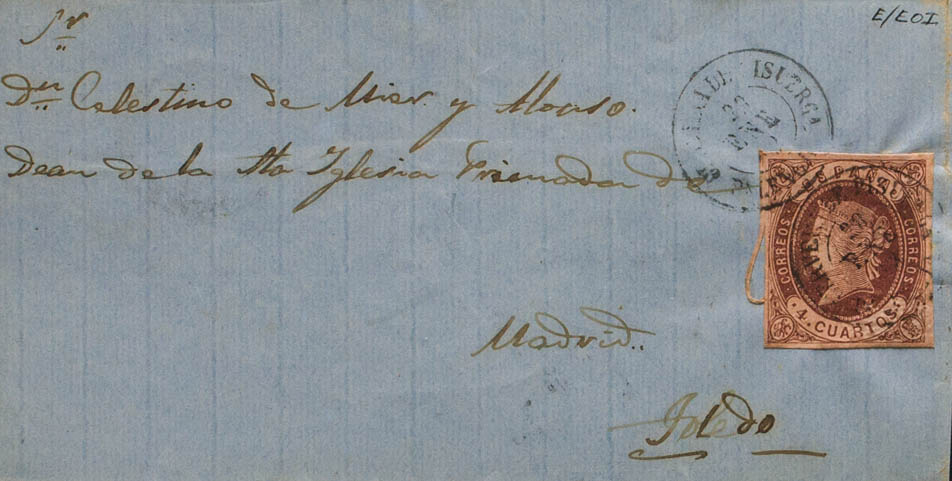 E/EOI
Sr
Dn Celestino de Mier y Alonso.
Dean de la Sta Iglesia Primada de
Madrid.
Toledo
ESPAÑA
CORREOS
CORREOS
4. CUARTOS.